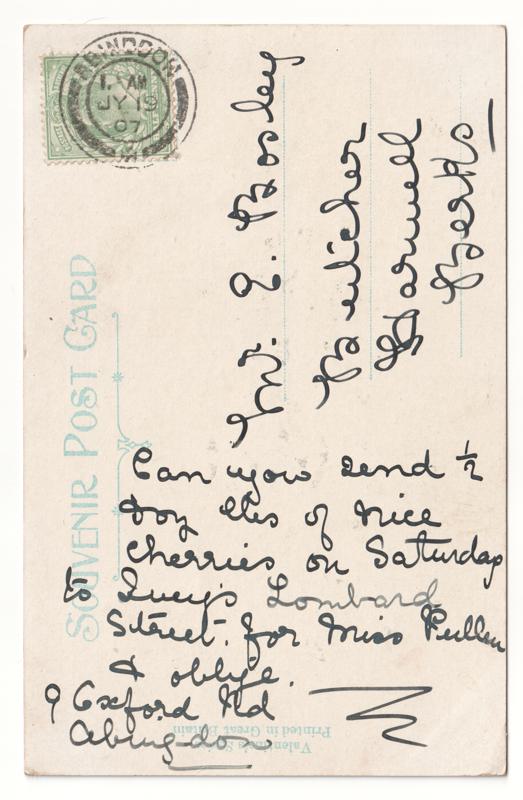 ABINGDON
1. AM
JY 19
07
SOUVENIR POST CARD
Mr. E. Bosley
Butcher
Harwell
Berks
Can you send ½
doz lbs of nice
cherries on Saturday
to Lucy's Lombard
Street. for Miss Pullen
& oblige.
9 Oxford Rd
Abingdon
Valentine's Series
Printed in Great Britain